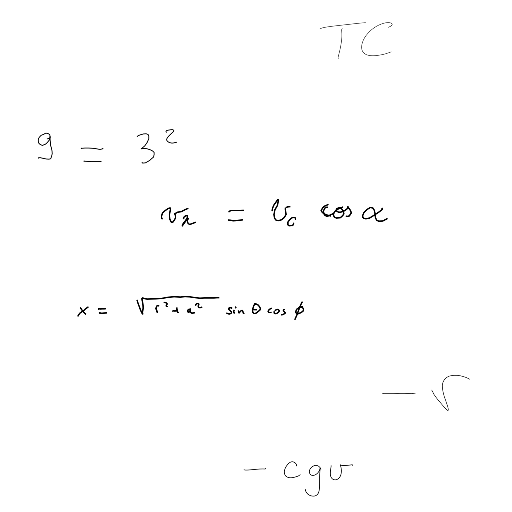 TC
9 = 3²
vₓ = v₀ cos α
x = √(r² + a²) sin θ cos ϕ
− √
− cgv